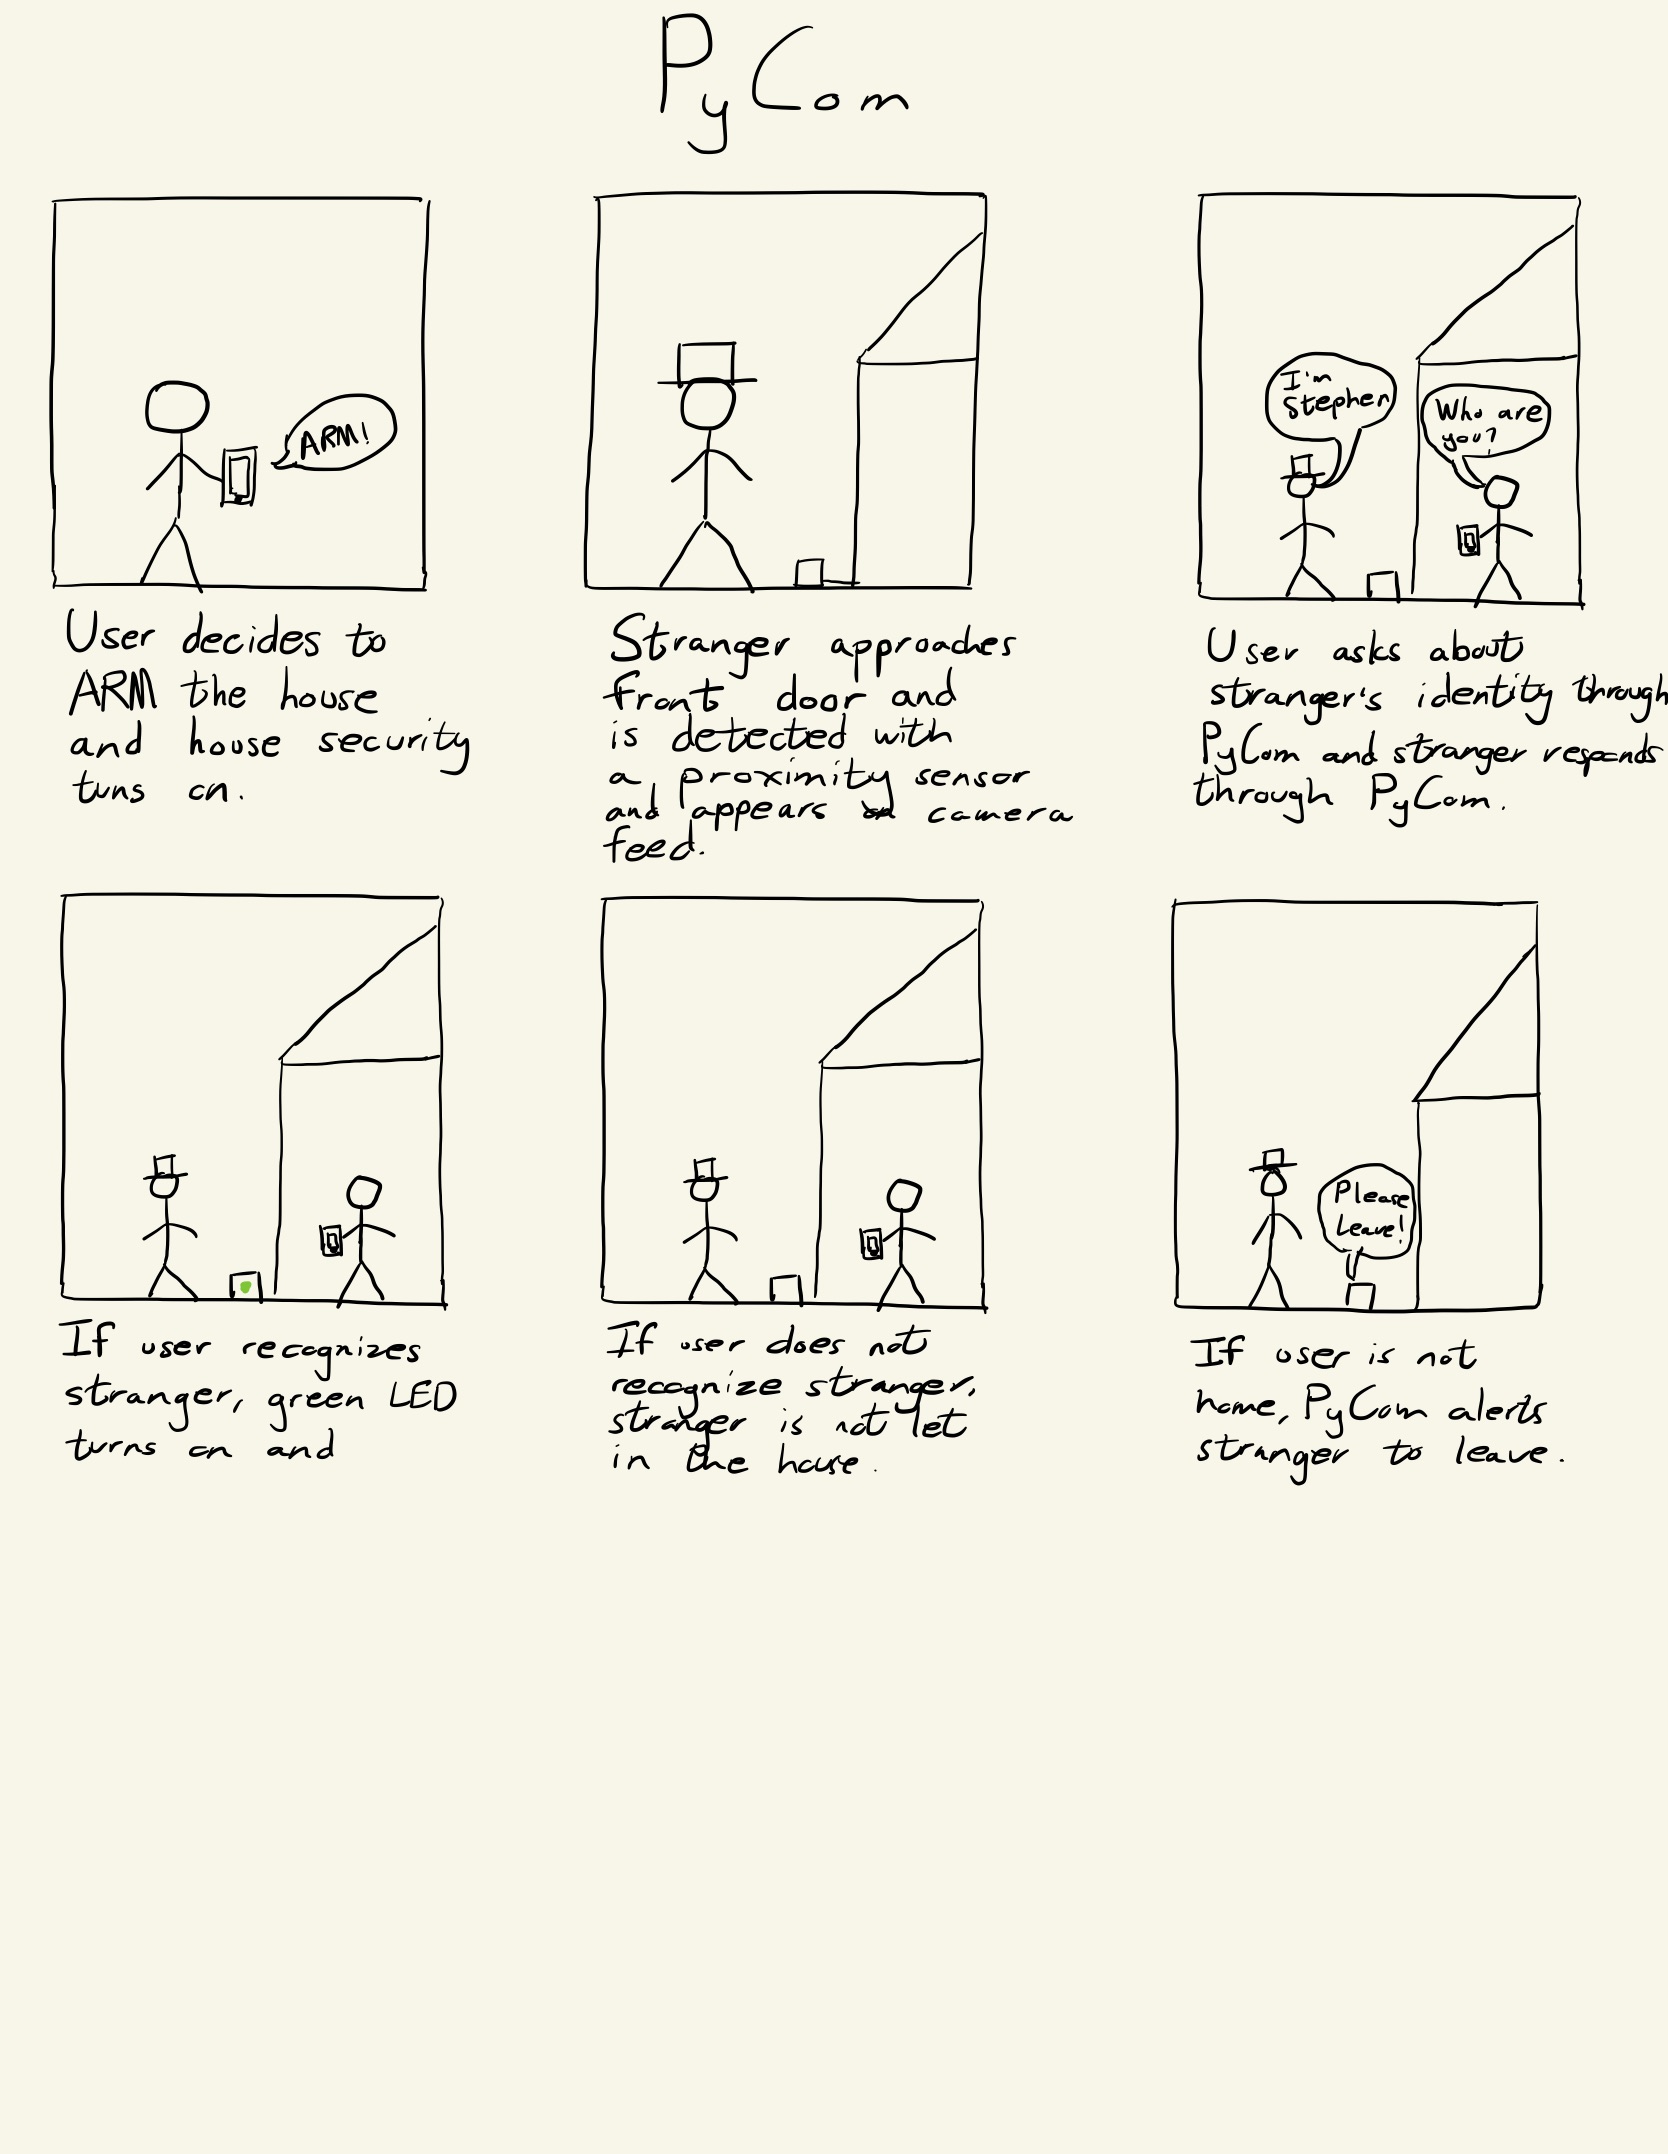 PyCom
ARM!
User decides to
ARM the house
and house security
tuns on.
Stranger approaches
front door and
is detected with
a proximity sensor
and appears on camera
feed.
I'm
Stephen
Who are
you?
User asks about
stranger's identity through
PyCom and stranger responds
through PyCom.
If user recognizes
stranger, green LED
turns on and
If user does not
recognize stranger,
stranger is not let
in the house.
Please
Leave!
If user is not
home, PyCom alerts
stranger to leave.